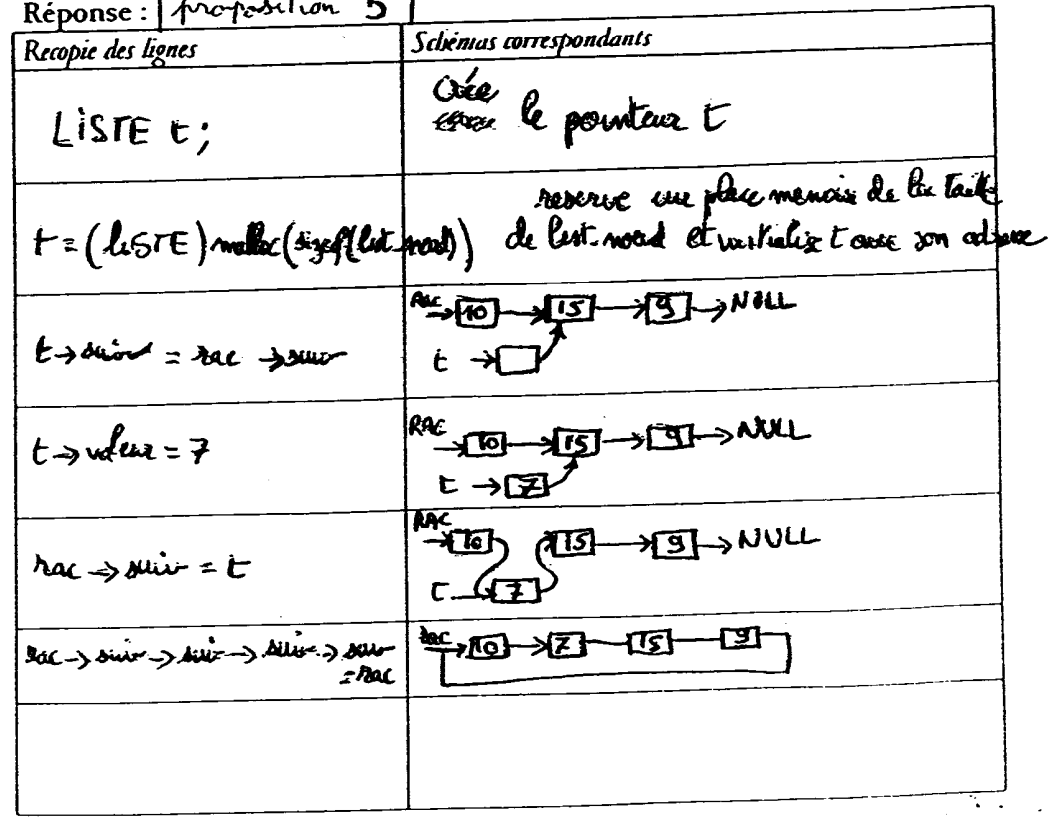 Réponse : proposition 5
Recopie des lignes
Schémas correspondants
LISTE t;
Crée le pointeur t
t = (LISTE) malloc(sizeof(list_noeud))
reserve une place memoire de la taille
de list_noeud et initialise t avec son adresse
t → suiv = rac → suiv
RAC → 10 → 15 → 9 → NULL
t →
t → valeur = 7
RAC → 10 → 15 → 9 → NULL
t → 7
rac → suiv = t
RAC → 10 15 → 9 → NULL
t → 7
rac → suiv → suiv → suiv → suiv
= rac
rac → 10 → 7 15 9